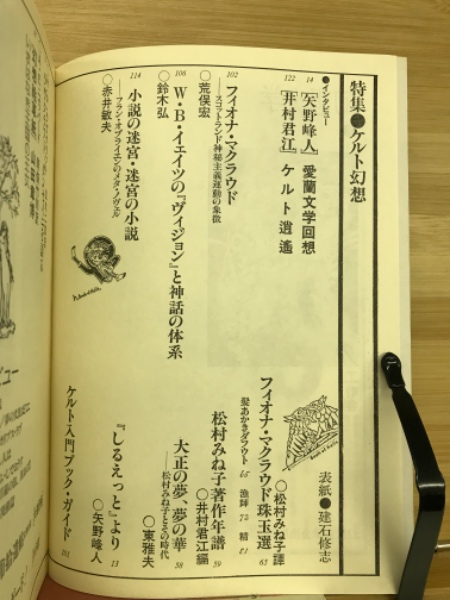 特集●ケルト幻想
表紙●建石修志
●インタビュー
14 [矢野峰人] 愛蘭文学回想
122 [井村君江] ケルト逍遙
フィオナ・マクラウド珠玉選
○松村みね子譯 65
髪あかきダフウト 65 漁師 75 精 81
102 フィオナ・マクラウド
——スコットランド神秘主義運動の象徴
○荒俣宏
松村みね子著作年譜
○井村君江編 59
108 W・B・イエイツの『ヴィジョン』と神話の体系
○鈴木弘
大正の夢、夢の華
——松村みね子とその時代
○東雅夫 58
114 小説の迷宮・迷宮の小説
——フラン・オブライエンのメタ・ノヴェル
○赤井敏夫
『しるえっと』より
○矢野峰人 13
ケルト入門ブック・ガイド